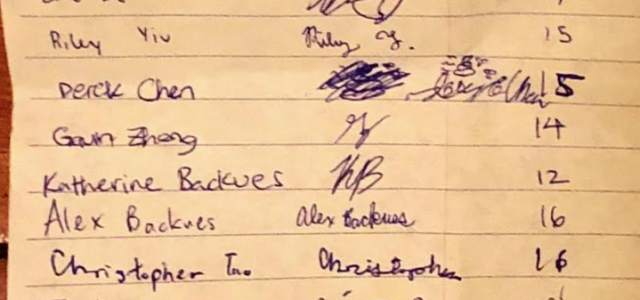 Riley Yiu Riley Y. 15
Derek Chen Chen 15
Gavin Zheng 14
Katherine Backues KB 12
Alex Backues Alex Backues 16
Christopher Tao Christopher 16